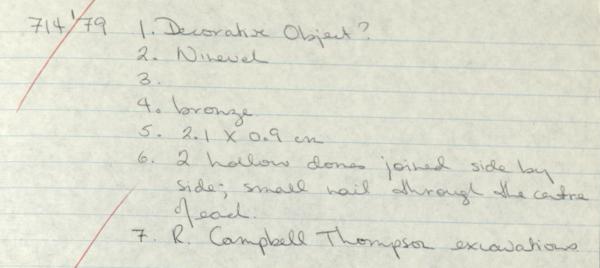 714'79 1. Decorative Object?
2. Nineveh
3.
4. bronze
5. 2.1 X 0.9 cm
6. 2 hollow domes joined side by
side; small nail through the centre
of each.
7. R. Campbell Thompson excavations